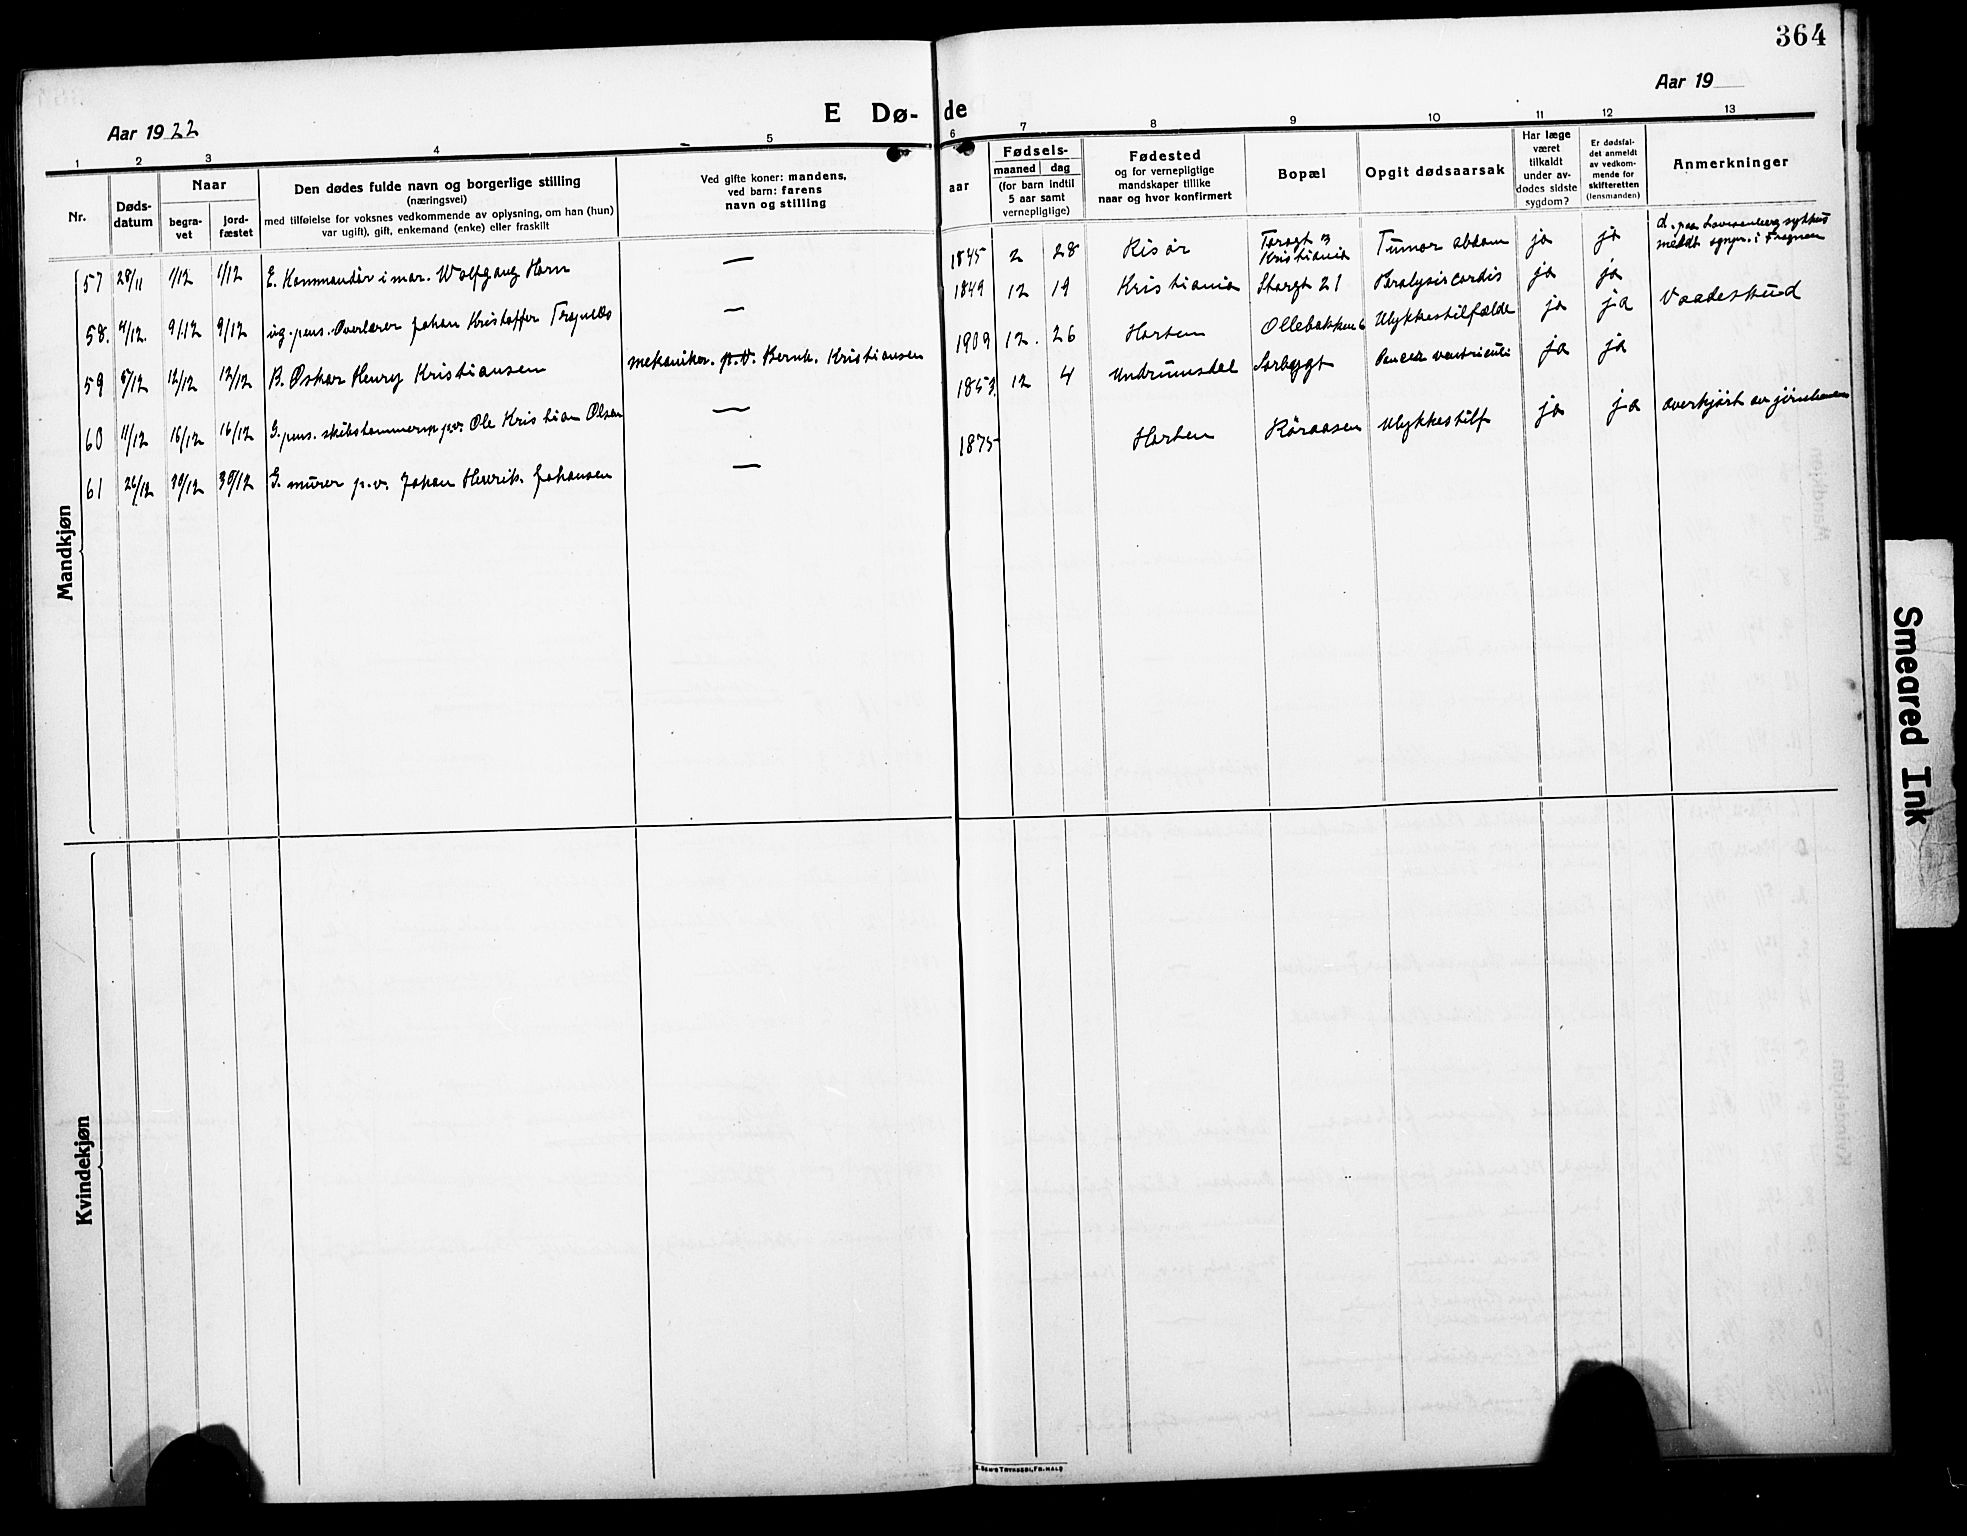 364
E Dø-de
Aar 1922
Aar 19
1 2 3 4 5 6 7 8 9 10 11 12 13
Nr.
Døds-
datum
Naar
begra-
vet
jord-
fæstet
Den dødes fulde navn og borgerlige stilling
(næringsvei)
med tilføielse for voksnes vedkommende av oplysning, om han (hun)
var ugift), gift, enkemand (enke) eller fraskilt
Ved gifte koner: mandens,
ved barn: farens
navn og stilling
Fødsels-
aar
maaned dag
(for barn indtil
5 aar samt
vernepligtige)
Fødested
og for vernepligtige
mandskaper tillike
naar og hvor konfirmert
Bopæl
Opgit dødsaarsak
Har læge
været
tilkaldt
under av-
dødes sidste
sygdom?
Er dødsfal-
det anmeldt
av vedkom-
mende for
skifteretten
(lensmanden)
Anmerkninger
Mandkjøn
57 28/11 1/12 1/12 E. Kommandør i mar. Wolfgang Horn — 1845 2 28 Risør Torvgt 3 Kristiania Tumor abdom ja ja d. paa Lovisenberg sykehus
meldt sognepr. i Frogner
58. 4/12. 9/12 9/12 ug. pens. Overlærer Johan Kristoffer Tragnæs — 1849 12 19 Kristiania Storgt 21 Paralysis cordis ja ja
59 8/12 12/12 12/12 B. Oskar Henry Kristiansen mekaniker. p.v. Bernh. Kristiansen 1909 12. 26 Horten Ollebakken 6 Ulykkestilfælde ja ja Vaadeskud
60 11/12 16/12 16/12 G. pens. skibstømmerm p.v. Ole Kristian Olsen — 1853. 12 4 Undrumsdal Sorbygt Cancer ventriculi ja ja
61 26/12 30/12 30/12 G. murer p.v. Johan Henrik Johansen — 1875 Horten Røraasen Ulykkestilf ja ja overkjørt av jernbanen
Kvindekjøn
Smeared Ink